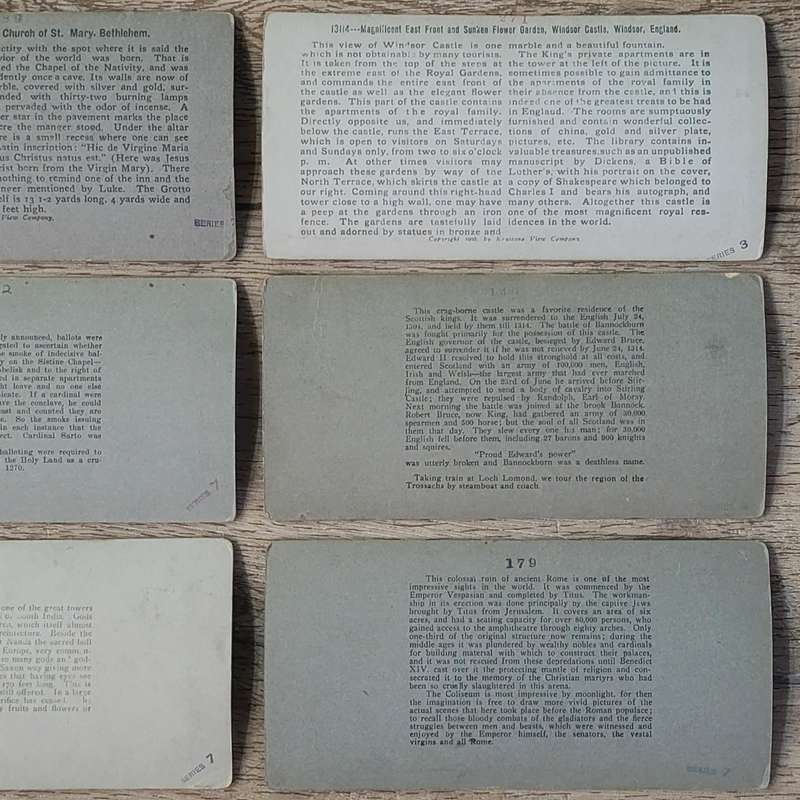 Church of St. Mary, Bethlehem.
ctity with the spot where it is said the
vior of the world was born. That is
ed the Chapel of the Nativity, and was
dently once a cave. Its walls are now of
rble, covered with silver and gold, sur-
nded with thirty-two burning lamps
pervaded with the odor of incense. A
er star in the pavement marks the place
ere the manger stood. Under the altar
re is a small recess where one can see
atin inscription: "Hic de Virgine Maria
us Christus natus est." (Here was Jesus
rist born from the Virgin Mary). There
nothing to remind one of the inn and the
neer mentioned by Luke. The Grotto
elf is 13 1-2 yards long, 4 yards wide and
feet high.
View Company.
SERIES
271
13114---Magnificent East Front and Sunken Flower Garden, Windsor Castle, Windsor, England.
This view of Windsor Castle is one
which is not obtainable by many tourists.
It is taken from the top of the steps at
the extreme east of the Royal Gardens,
and commands the entire east front of
the castle as well as the elegant flower
gardens. This part of the castle contains
the apartments of the royal family.
Directly opposite us, and immediately
below the castle, runs the East Terrace,
which is open to visitors on Saturdays
and Sundays only, from two to six o'clock
p. m. At other times visitors may
approach these gardens by way of the
North Terrace, which skirts the castle at
our right. Coming around this right-hand
tower close to a high wall, one may have
a peep at the gardens through an iron
fence. The gardens are tastefully laid
out and adorned by statues in bronze and
marble and a beautiful fountain.
The King's private apartments are in
the tower at the left of the picture. It is
sometimes possible to gain admittance to
the apartments of the royal family in
their absence from the castle, and this is
indeed one of the greatest treats to be had
in England. The rooms are sumptuously
furnished and contain wonderful collec-
tions of china, gold and silver plate,
pictures, etc. The library contains in-
valuable treasures, such as an unpublished
manuscript by Dickens, a Bible of
Luther's, with his portrait on the cover,
a copy of Shakespeare which belonged to
Charles I and bears his autograph, and
many others. Altogether this castle is
one of the most magnificent royal res-
idences in the world.
Copyright by Keystone View Company.
SERIES 3
2
ly announced, ballots were
gated to ascertain whether
e smoke of indecisive bal-
y on the Sistine Chapel—
belisk and to the right of
ed in separate apartments
ht leave and no one else
icate. If a cardinal were
ave the conclave, he could
ast and counted they are
e. So the smoke issuing
in each instance that the
ect. Cardinal Sarto was
balloting were required to
the Holy Land as a cru-
1270.
SERIES 7
This crag-borne castle was a favorite residence of the
Scottish kings. It was surrendered to the English July 24,
1304, and held by them till 1314. The battle of Bannockburn
was fought primarily for the possession of this castle. The
English governor of the castle, besieged by Edward Bruce,
agreed to surrender it if he was not relieved by June 24, 1314.
Edward II. resolved to hold this stronghold at all costs, and
entered Scotland with an army of 100,000 men, English,
Irish and Welsh—the largest army that had ever marched
from England. On the 23rd of June he arrived before Stir-
ling, and attempted to send a body of cavalry into Stirling
Castle; they were repulsed by Randolph, Earl of Moray.
Next morning the battle was joined at the brook Bannock.
Robert Bruce, now King, had gathered an army of 30,000
spearmen and 500 horse; but the soul of all Scotland was in
them that day. They slew every one his man; for 30,000
English fell before them, including 27 barons and 200 knights
and squires.
"Proud Edward's power"
was utterly broken and Bannockburn was a deathless name.
Taking train at Loch Lomond, we tour the region of the
Trossachs by steamboat and coach.
one of the great towers
South India. Gods
rea, which itself almost
rchitecture. Beside the
Nanda the sacred bull
Europe, very comm n-
o many gods an god-
Saxon way giving more
es that having eyes see
170 feet long. This is
still offered. In a large
rifice has ceased.
y fruits and flowers or
SERIES 7
179
This colossal ruin of ancient Rome is one of the most
impressive sights in the world. It was commenced by the
Emperor Vespasian and completed by Titus. The workman-
ship in its erection was done principally by the captive Jews
brought by Titus from Jerusalem. It covers an area of six
acres, and had a seating capacity for over 80,000 persons, who
gained access to the amphitheatre through eighty arches. Only
one-third of the original structure now remains; during the
middle ages it was plundered by wealthy nobles and cardinals
for building material with which to construct their palaces,
and it was not rescued from these depredations until Benedict
XIV. cast over it the protecting mantle of religion and con-
secrated it to the memory of the Christian martyrs who had
been so cruelly slaughtered in this arena.
The Coliseum is most impressive by moonlight, for then
the imagination is free to draw more vivid pictures of the
actual scenes that here took place before the Roman populace;
to recall those bloody combats of the gladiators and the fierce
struggles between men and beasts, which were witnessed and
enjoyed by the Emperor himself, the senators, the vestal
virgins and all Rome.
SERIES 7